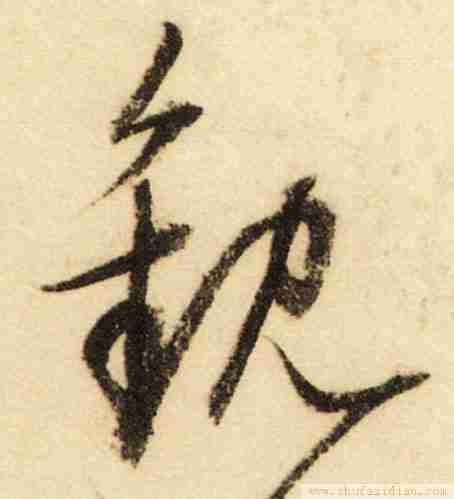 親
www.shufazidian.com